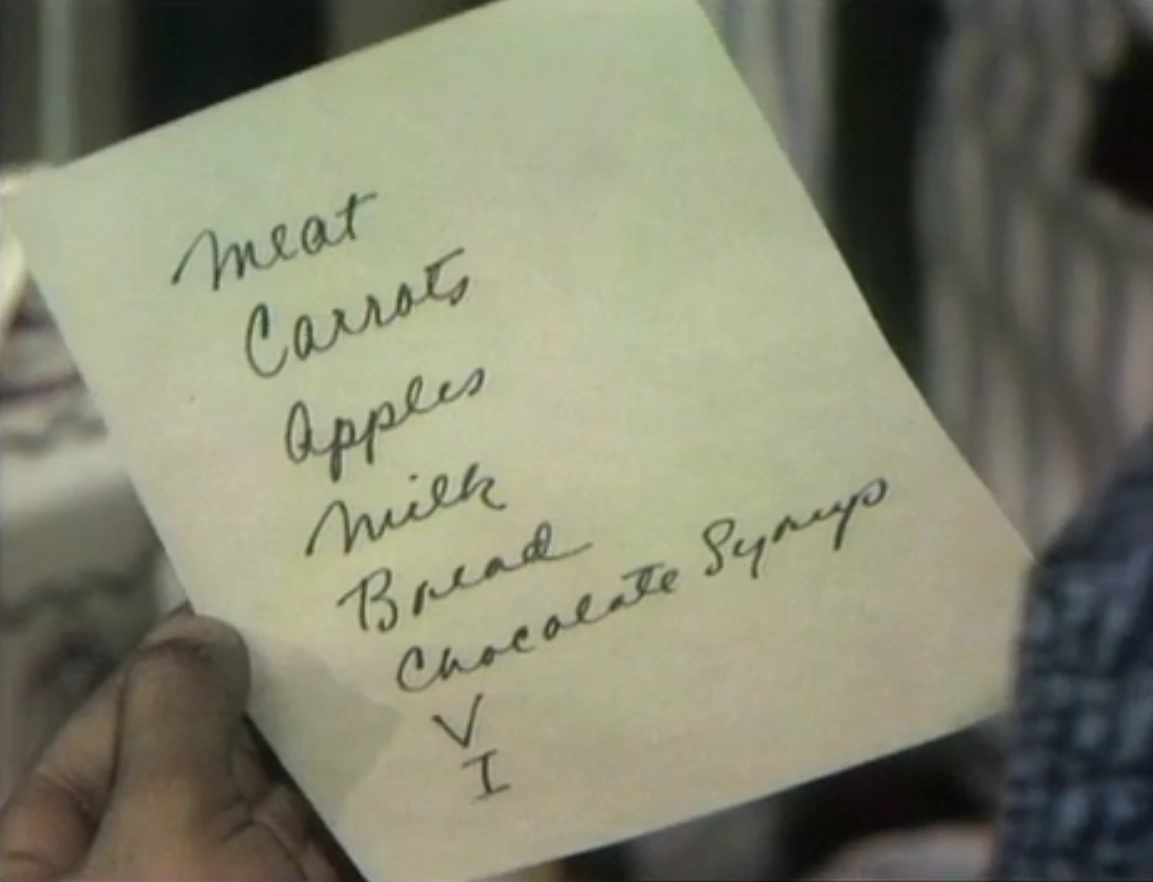 Meat
Carrots
Apples
Milk
Bread
Chocolate Syrup
V
I